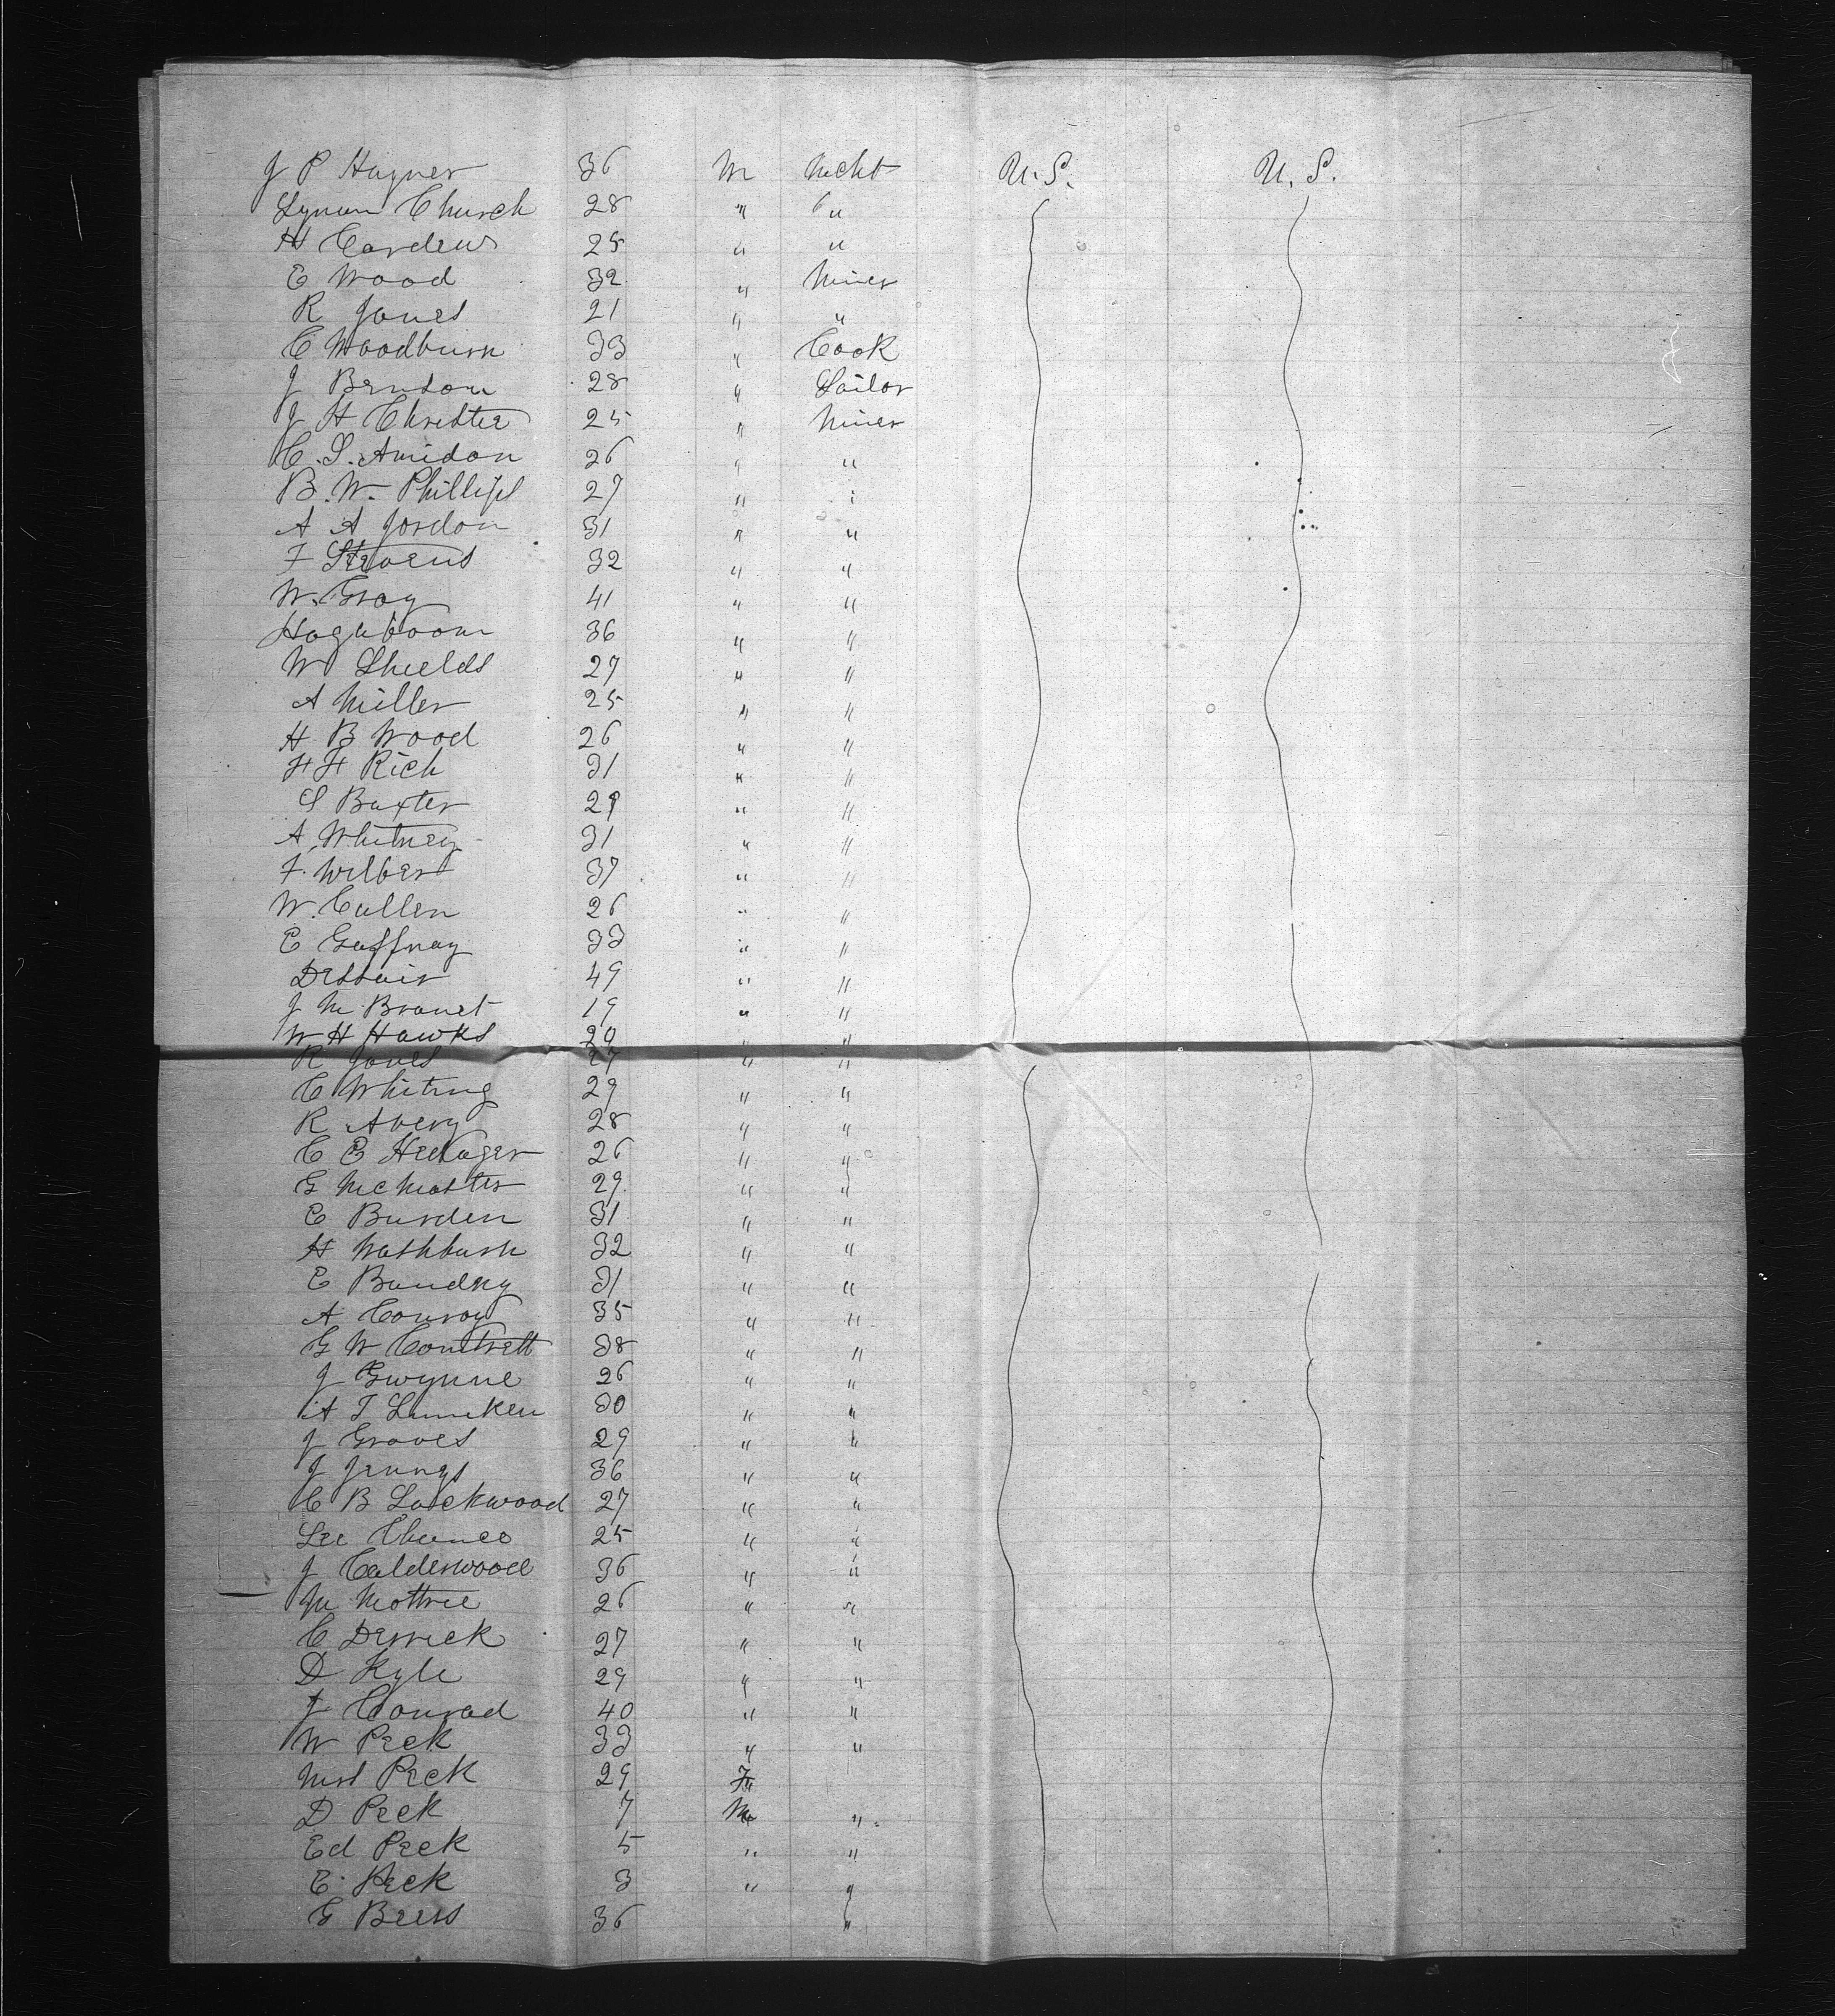 J P Hagner 36 M Mcht U.S. U.S.
Lyman Church 28 " "
H Cardew 25 " "
E Wood 32 " Miner
R Jones 21 " "
C Woodburn 33 " Cook
J Benson 28 " Sailor
J H Christie 25 " Miner
C. S. Amidon 26 " "
B. W. Phillips 27 " "
A A Jordon 31 " "
F Stevens 32 " "
W. Gray 41 " "
Hogaboom 36 " "
W Shields 27 " "
A Miller 25 " "
H B Wood 26 " "
H H Rich 31 " "
S Baxter 29 " "
A Whitney 31 " "
F. Wilbert 37 " "
W. Cullen 26 " "
E Gaffnay 33 " "
49 " "
J M 19 " "
W H Hawks 20 " "
R Jones 27 " "
C Whiting 29 " "
R Avery 28 " "
C E 26 " "
G McMaster 29 " "
E Burden 31 " "
H Washburn 32 " "
E Bundey 31 " "
A Conroy 35 " "
G W 38 " "
J Gwynne 26 " "
A T 30 " "
J Groves 29 " "
J 36 " "
C B Lockwood 27 " "
Lee Chance 25 " "
J Calderwood 36 " "
26 " "
C Derrick 27 " "
D Kyle 29 " "
J Conrad 40 " "
W Peck 33 " "
Mrs Peck 29 F
D Peck 7 M "
Ed Peck 5 " "
E. Peck 3 " "
G Beers 36 "